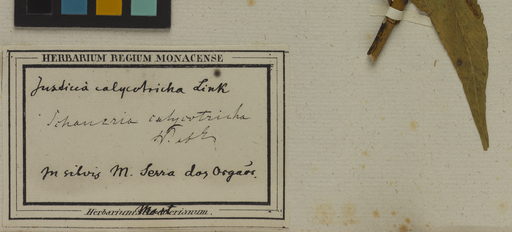 HERBARIUM REGIUM MONACENSE
Justicia calycotricha Link
Schaueria calycotricha
N. ab E.
In silvis M. Serra dos Orgaõs.
Herbarium Mart